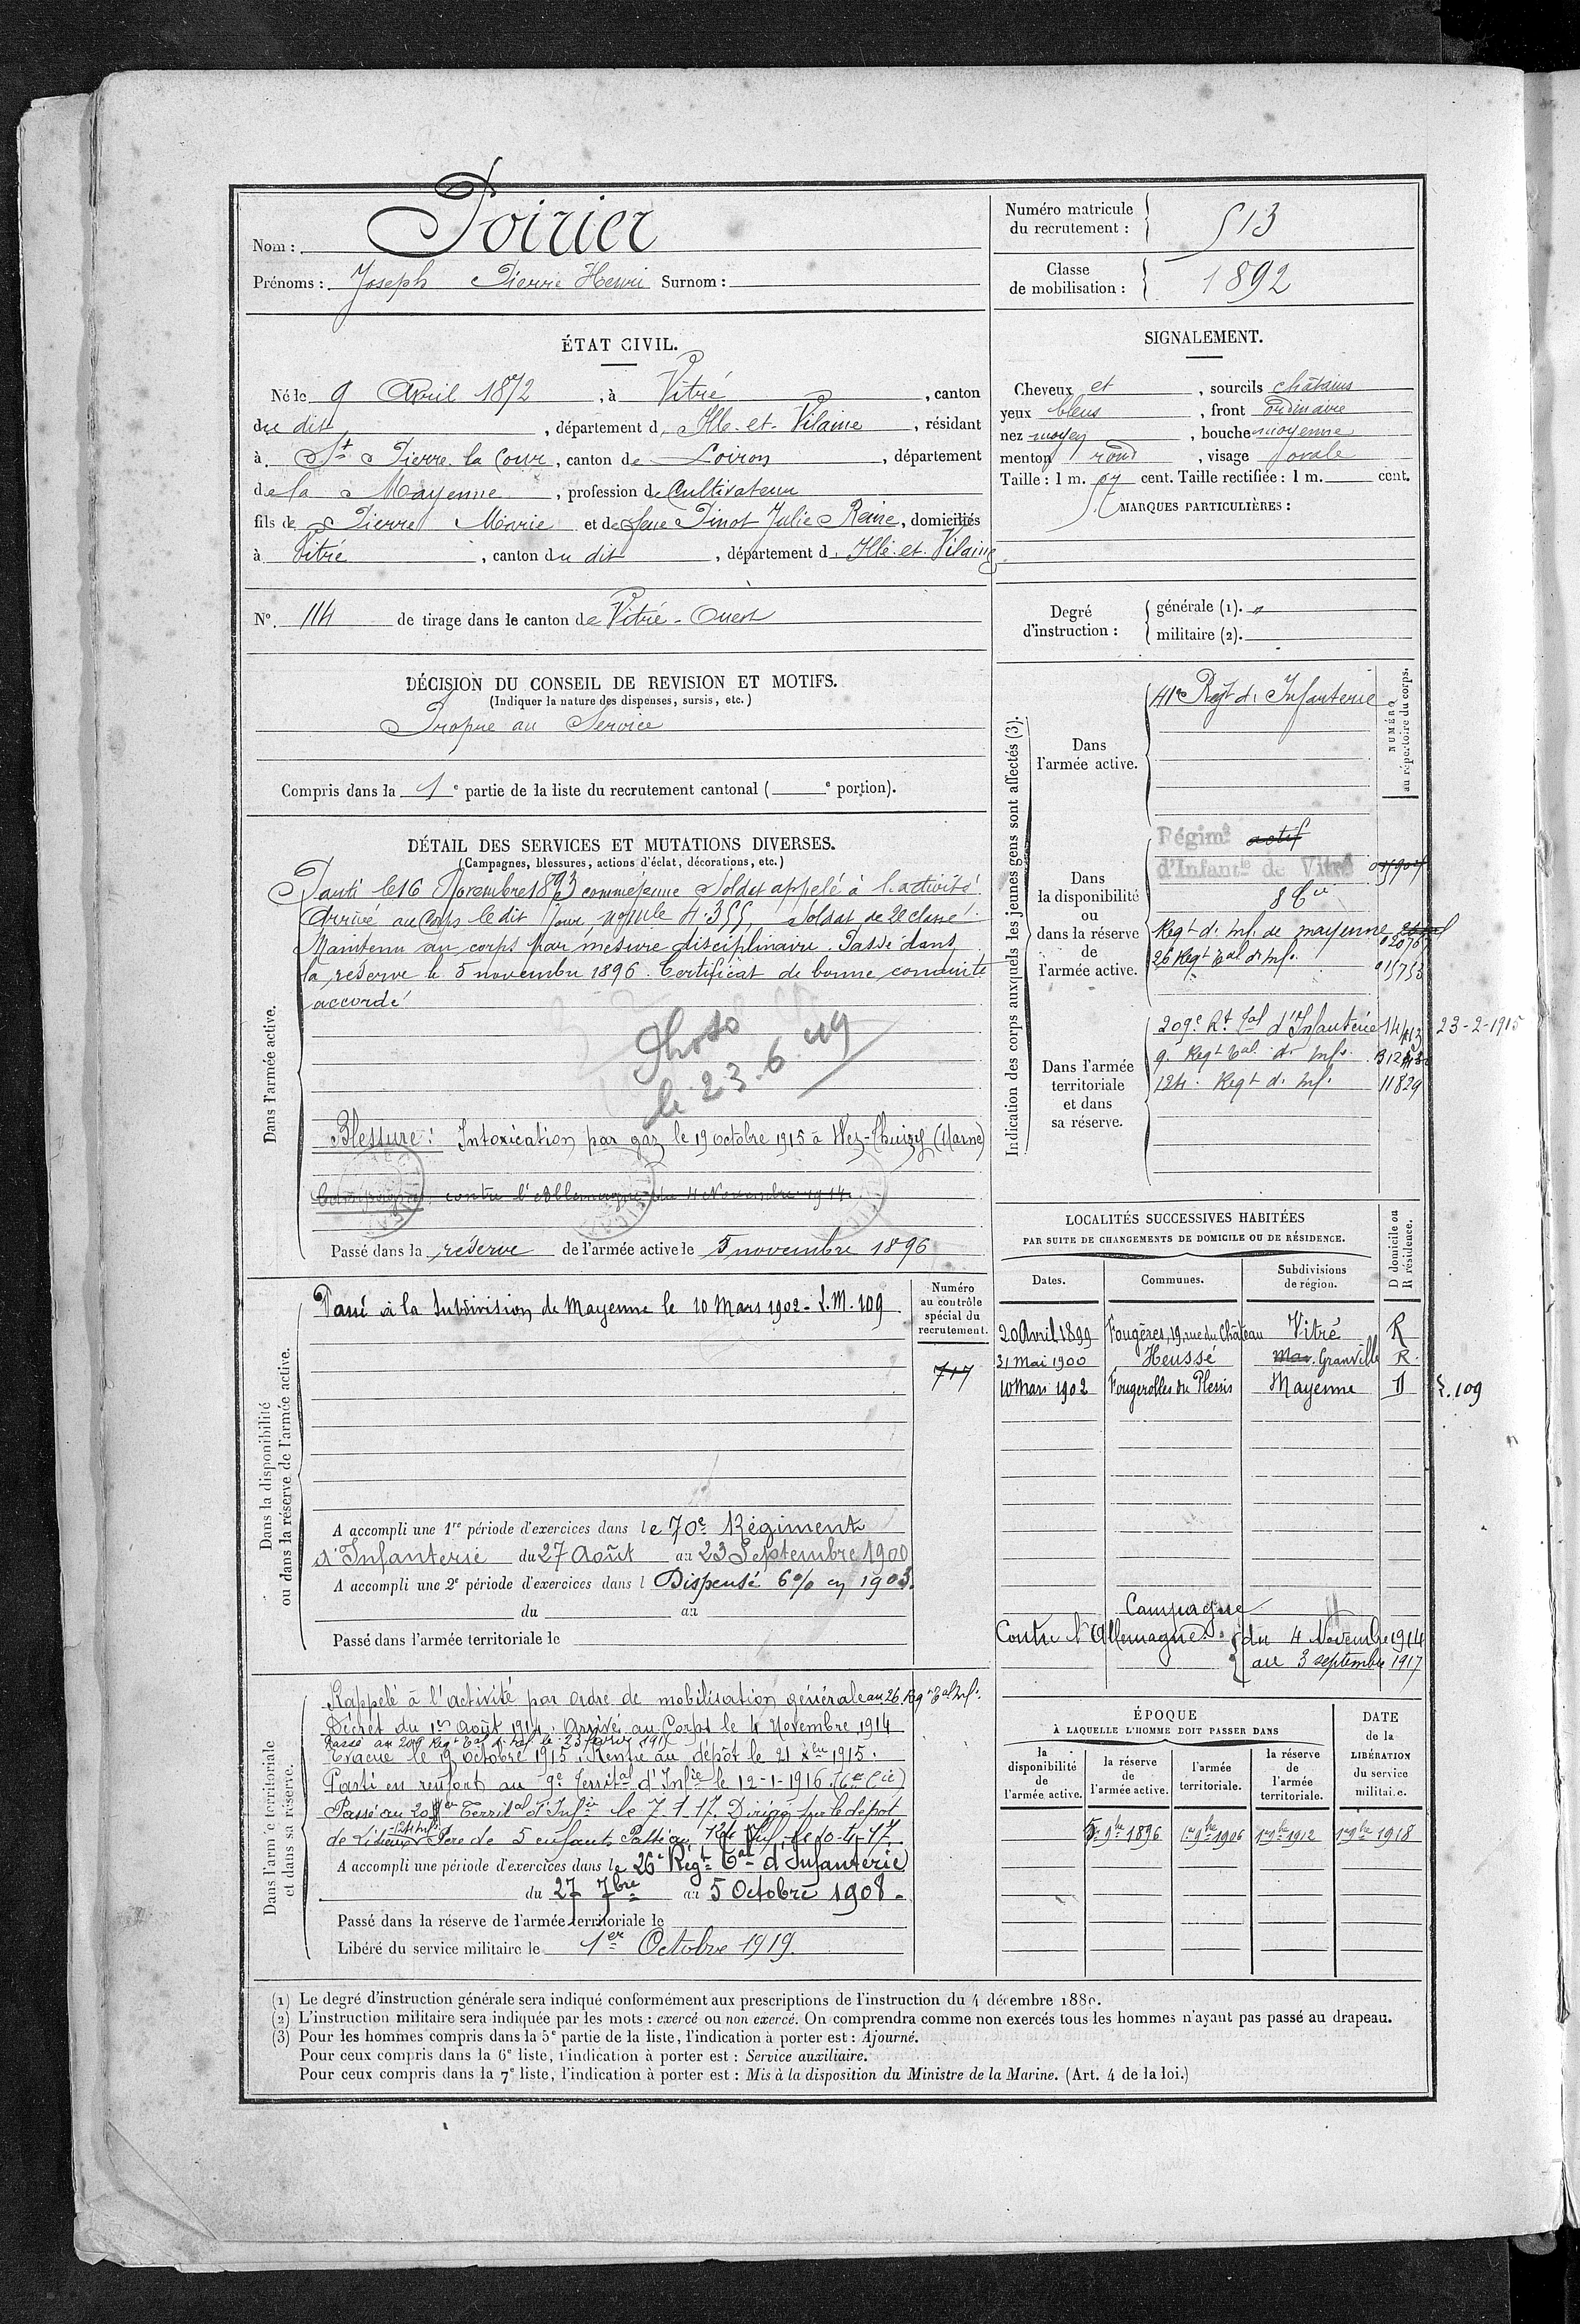 Nom : Poirier
Prénoms : Joseph Pierre Henri Surnom :
Numéro matricule du recrutement : 513
Classe de mobilisation : 1892
ÉTAT CIVIL.
Né le 9 Avril 1872, à Vitré, canton
du dit, département d Ille-et-Vilaine, résidant
à St Pierre la Cour, canton de Loiron, département
de la Mayenne, profession de Cultivateur
fils de Pierre Marie et de feue Pinot Julie Reine, domiciliés
à Vitré, canton du dit, département d Ille et Vilaine
N° 114 de tirage dans le canton de Vitré-Ouest
DÉCISION DU CONSEIL DE REVISION ET MOTIFS.
(Indiquer la nature des dispenses, sursis, etc.)
Propre au Service
Compris dans la 1e partie de la liste du recrutement cantonal ( e portion).
SIGNALEMENT.
Cheveux et, sourcils châtains
yeux bleus, front ordinaire
nez moyen, bouche moyenne
menton rond, visage ovale
Taille : 1 m. 57 cent. Taille rectifiée : 1 m. cent.
MARQUES PARTICULIÈRES :
Degré d'instruction :
générale (1). "
militaire (2).
DÉTAIL DES SERVICES ET MUTATIONS DIVERSES.
(Campagnes, blessures, actions d'éclat, décorations, etc.)
Dans l'armée active.
Parti le 16 Novembre 1893 comme jeune Soldat appelé à l'activité.
Arrivé au Corps le dit Jour, no mle 4.355, Soldat de 2e classe.
Maintenu au corps par mesure disciplinaire. Passé dans
la réserve le 5 novembre 1896. Certificat de bonne conduite
accordé
Photo
le 23.6.49
Blessure : Intoxication par gaz le 19 octobre 1915 à Wez-Thuizy (Marne)
Campagne contre l'Allemagne du 4 Novembre 1914
Passé dans la réserve de l'armée active le 5 novembre 1896
Indication des corps auxquels les jeunes gens sont affectés (3).
NUMÉRO au répertoire du corps.
Dans l'armée active.
41e Regt d'Infanterie
Dans la disponibilité ou dans la réserve de l'armée active.
Régimt actif
d'Infantie de Vitré
8 Cie
Regt d'Inf. de mayenne
26 Regt tal d'Inf. 15753
Dans l'armée territoriale et dans sa réserve.
209e Rt Tal d'Infanterie 23-2-1915
9. Regt tal d'Inf.
124. Regt d'Inf. 11829
Dans la disponibilité ou dans la réserve de l'armée active.
Numéro au contrôle spécial du recrutement.
Passé à la Subdivision de Mayenne le 10 Mars 1902 - L.M. 109
717
A accompli une 1re période d'exercices dans le 70e Régiment
d'Infanterie du 27 Août au 23 Septembre 1900
A accompli une 2e période d'exercices dans l Dispensé 6% en 1903.
du au
Passé dans l'armée territoriale le
LOCALITÉS SUCCESSIVES HABITÉES
PAR SUITE DE CHANGEMENTS DE DOMICILE OU DE RÉSIDENCE.
Dates. Communes. Subdivisions de région. D domicile ou R résidence.
20 Avril 1899 Fougères, 19, rue du Château Vitré R
31 Mai 1900 Heussé May. Granville R.
10 Mars 1902 Fougerolles du Plessis Mayenne D L. 109
Campagne
Contre l'Allemagne du 4 Novembre 1914
au 3 septembre 1917
Dans l'armée territoriale et dans sa réserve.
Rappelé à l'activité par ordre de mobilisation générale au 26. Regt tal Inf.
Décret du 1er Août 1914. Arrivé au Corps le 4 Novembre 1914
Passé au 209 Regt tal d'Inf le 23 février 1915
Evacué le 19 octobre 1915. Rentré au dépôt le 21 Xbre 1915.
Parti en renfort au 9e Territal d'Infie le 12-1-1916 (6e Cie)
Passé au Territal d'Infie le 7.1.17. Dirigé sur le dépôt
124 Inf.
de Lisieux Père de 5 enfants Passé au 124 Inf. le 10-4-17.
A accompli une période d'exercices dans le 26e Régt Tal d'Infanterie
du 27 7bre au 5 Octobre 1908.
Passé dans la réserve de l'armée territoriale le
Libéré du service militaire le 1er Octobre 1919.
ÉPOQUE À LAQUELLE L'HOMME DOIT PASSER DANS
DATE de la LIBÉRATION du service militaire.
la disponibilité de l'armée active. la réserve de l'armée active. l'armée territoriale. la réserve de l'armée territoriale.
5 9bre 1896 1er 9bre 1906 1er 9bre 1912 1er 9bre 1918
(1) Le degré d'instruction générale sera indiqué conformément aux prescriptions de l'instruction du 4 décembre 1889.
(2) L'instruction militaire sera indiquée par les mots : exercé ou non exercé. On comprendra comme non exercés tous les hommes n'ayant pas passé au drapeau.
(3) Pour les hommes compris dans la 5e partie de la liste, l'indication à porter est : Ajourné.
Pour ceux compris dans la 6e liste, l'indication à porter est : Service auxiliaire.
Pour ceux compris dans la 7e liste, l'indication à porter est : Mis à la disposition du Ministre de la Marine. (Art. 4 de la loi.)